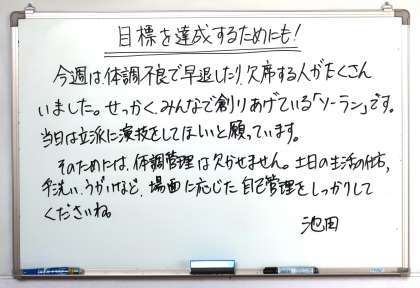 目標を達成するためにも!
今週は体調不良で早退したり、欠席する人がたくさん
いました。せっかくみんなで創りあげている「ソーラン」です。
当日は立派に演技をしてほしいと願っています。
そのためには、体調管理は欠かせません。土日の生活の仕方、
手洗い、うがいなど、場面に応じた自己管理をしっかりして
くださいね。
池田